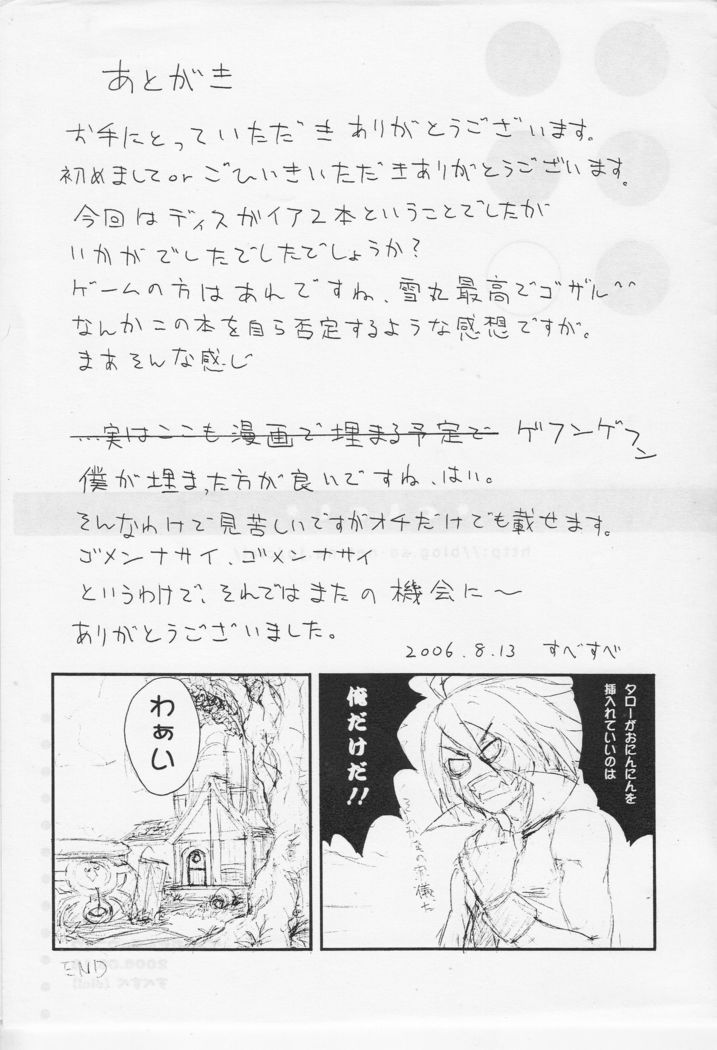 あとがき
お手にとっていただき ありがとうございます。
初めましてor ごひいきいただきありがとうございます。
今回はディスガイア2本ということでしたが
いかがでしたでしたでしょうか?
ゲームの方はあれですね、雪丸最高でゴザル^^
なんかこの本を自ら否定するような感想ですが。
まあそんな感じ
…実はここも漫画で埋まる予定で ゲフンゲフン
僕が埋まった方が良いですね、はい。
そんなわけで見苦しいですがオチだけでも載せます。
ゴメンナサイ、ゴメンナサイ
というわけで、それではまたの機会に〜
ありがとうございました。
2006.8.13 すべすべ
タローがおにんにんを
挿入れていいのは
俺だけだ!!
わぁい
END